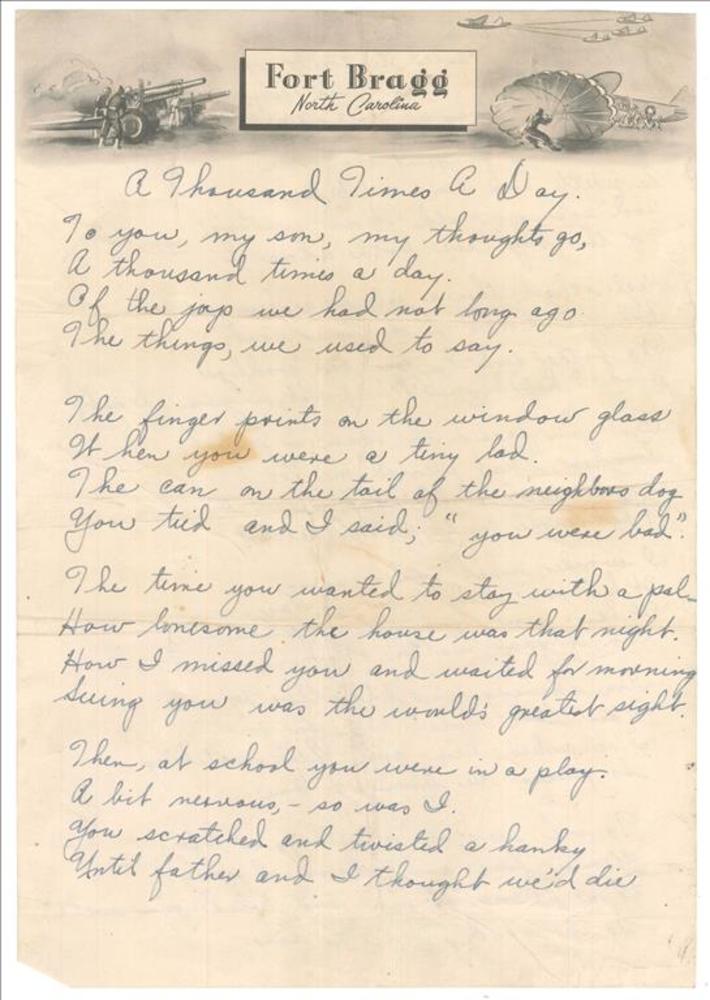 Fort Bragg
North Carolina
A Thousand Times A Day.
To you, my son, my thoughts go,
A thousand times a day.
Of the joys we had not long ago
The things, we used to say.
The finger prints on the window glass
When you were a tiny lad.
The can on the tail of the neighbors dog
You tied and I said; "you were bad".
The time you wanted to stay with a pal-
How lonesome the house was that night.
How I missed you and waited for morning
Seeing you was the world's greatest sight.
Then, at school you were in a play.
A bit nervous, - so was I.
You scratched and twisted a hanky
Until father and I thought we'd die